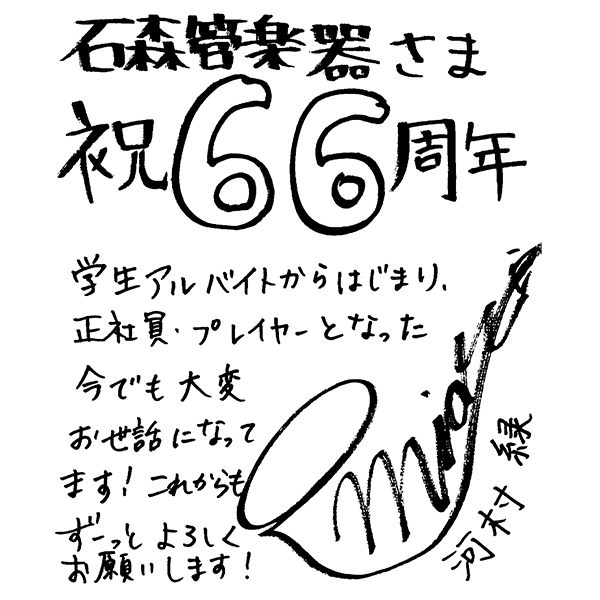 石森管楽器さま
祝66周年
学生アルバイトからはじまり、
正社員・プレイヤーとなった
今でも大変
お世話になって
ます！これからも
ずーっとよろしく
お願いします！
河村 緑